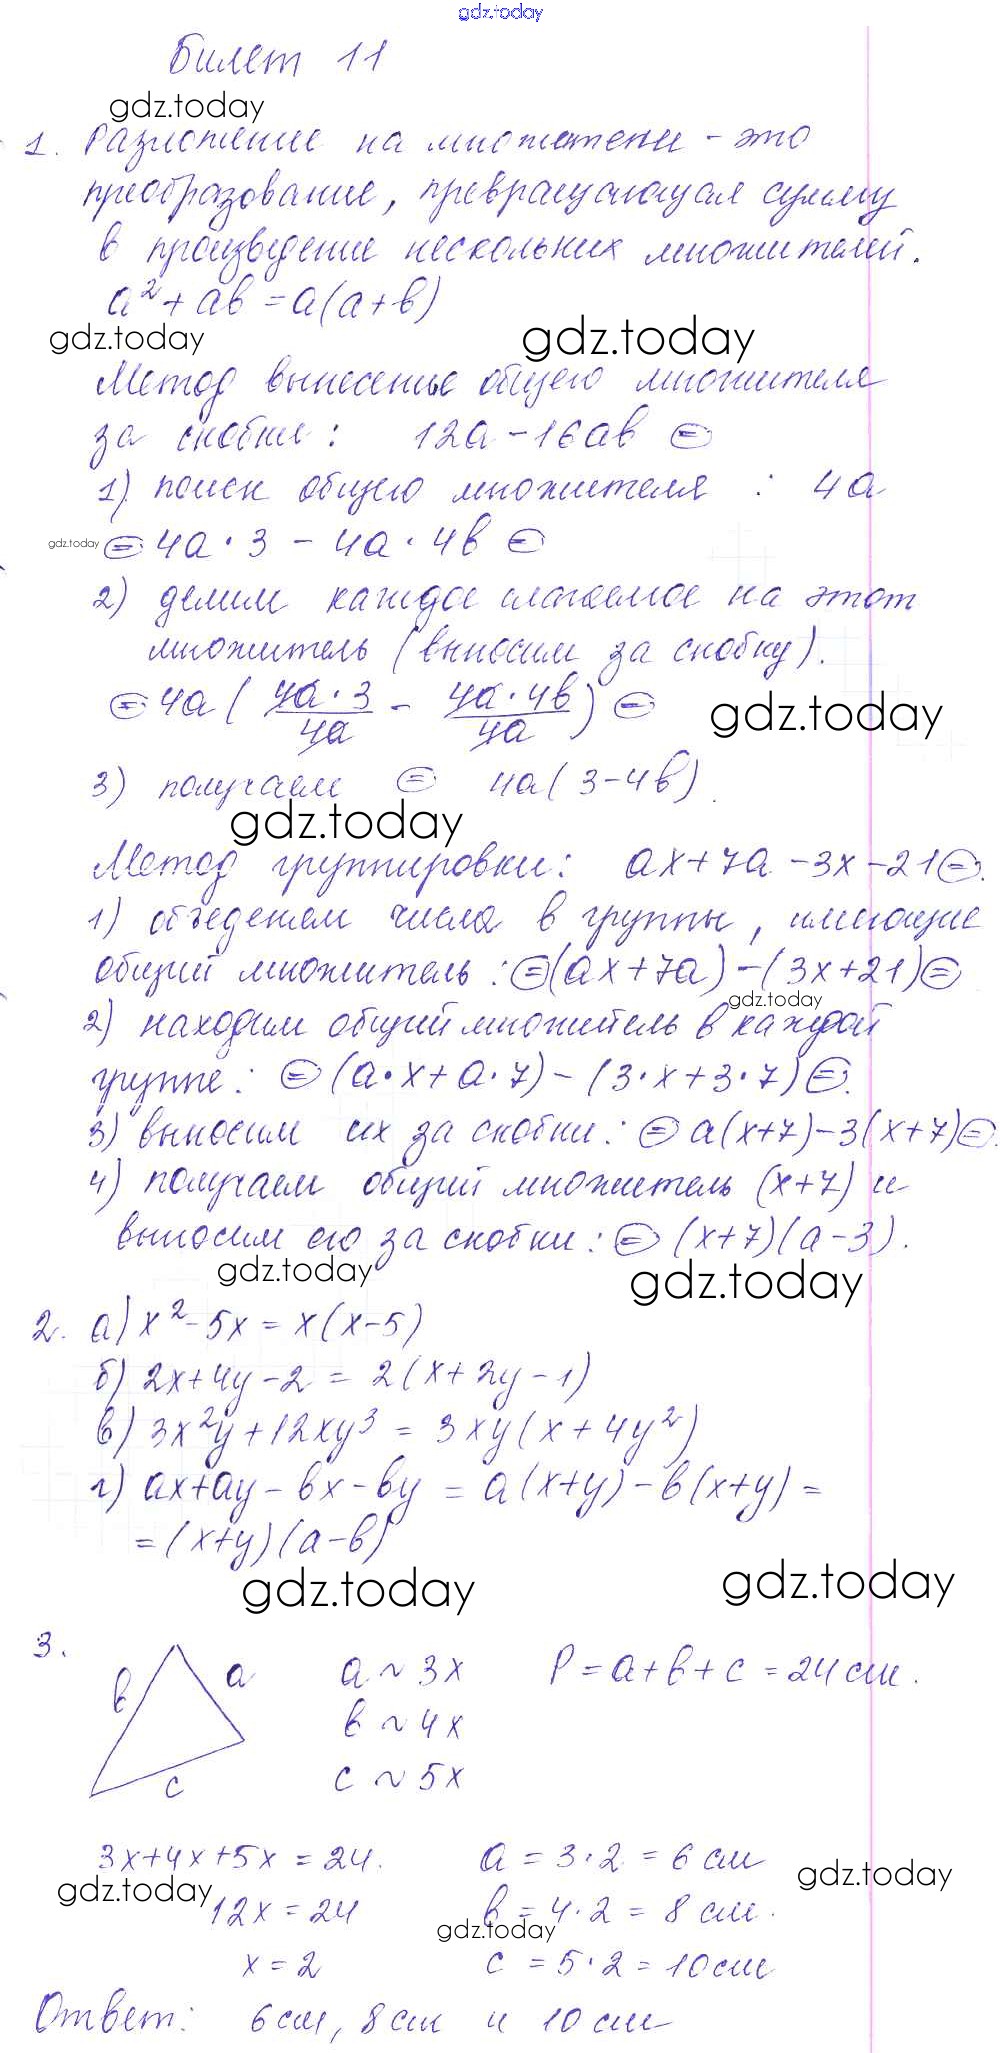 gdz.today
Билет 11
gdz.today
1. Разложение на множители - это
преобразование, превращающая сумму
в произведение нескольких множителей.
a² + ab = a(a+b)
gdz.today gdz.today
Метод вынесенье общего множителя
за скобки: 12a - 16ab =
1) поиск общего множителя : 4a
gdz.today = 4a · 3 - 4a · 4b =
2) делим каждое слагаемое на этот
множитель (выносим за скобку).
= 4a ( 4a·3/4a - 4a·4b/4a ) =
gdz.today
3) получаем = 4a(3-4b).
gdz.today
Метод группировки: ax+7a-3x-21 =
1) объеденяем числа в группы, имеющие
общий множитель: = (ax+7a)-(3x+21) =
gdz.today
2) находим общий множитель в каждой
группе: = (a·x+a·7)-(3·x+3·7) =
3) выносим их за скобки: = a(x+7)-3(x+7) =
4) получаем общий множитель (x+7) и
выносим его за скобки: = (x+7)(a-3).
gdz.today gdz.today
2. а) x²-5x = x(x-5)
б) 2x+4y-2 = 2(x+2y-1)
в) 3x²y+12xy³ = 3xy(x+4y²)
г) ax+ay-bx-by = a(x+y)-b(x+y) =
= (x+y)(a-b)
gdz.today gdz.today
3.
b a a ~ 3x P = a+b+c = 24 см.
b ~ 4x
c c ~ 5x
3x+4x+5x = 24. a = 3·2 = 6 см
gdz.today gdz.today
12x = 24 b = 4·2 = 8 см.
gdz.today
x = 2 c = 5·2 = 10 см
Ответ: 6 см, 8 см и 10 см